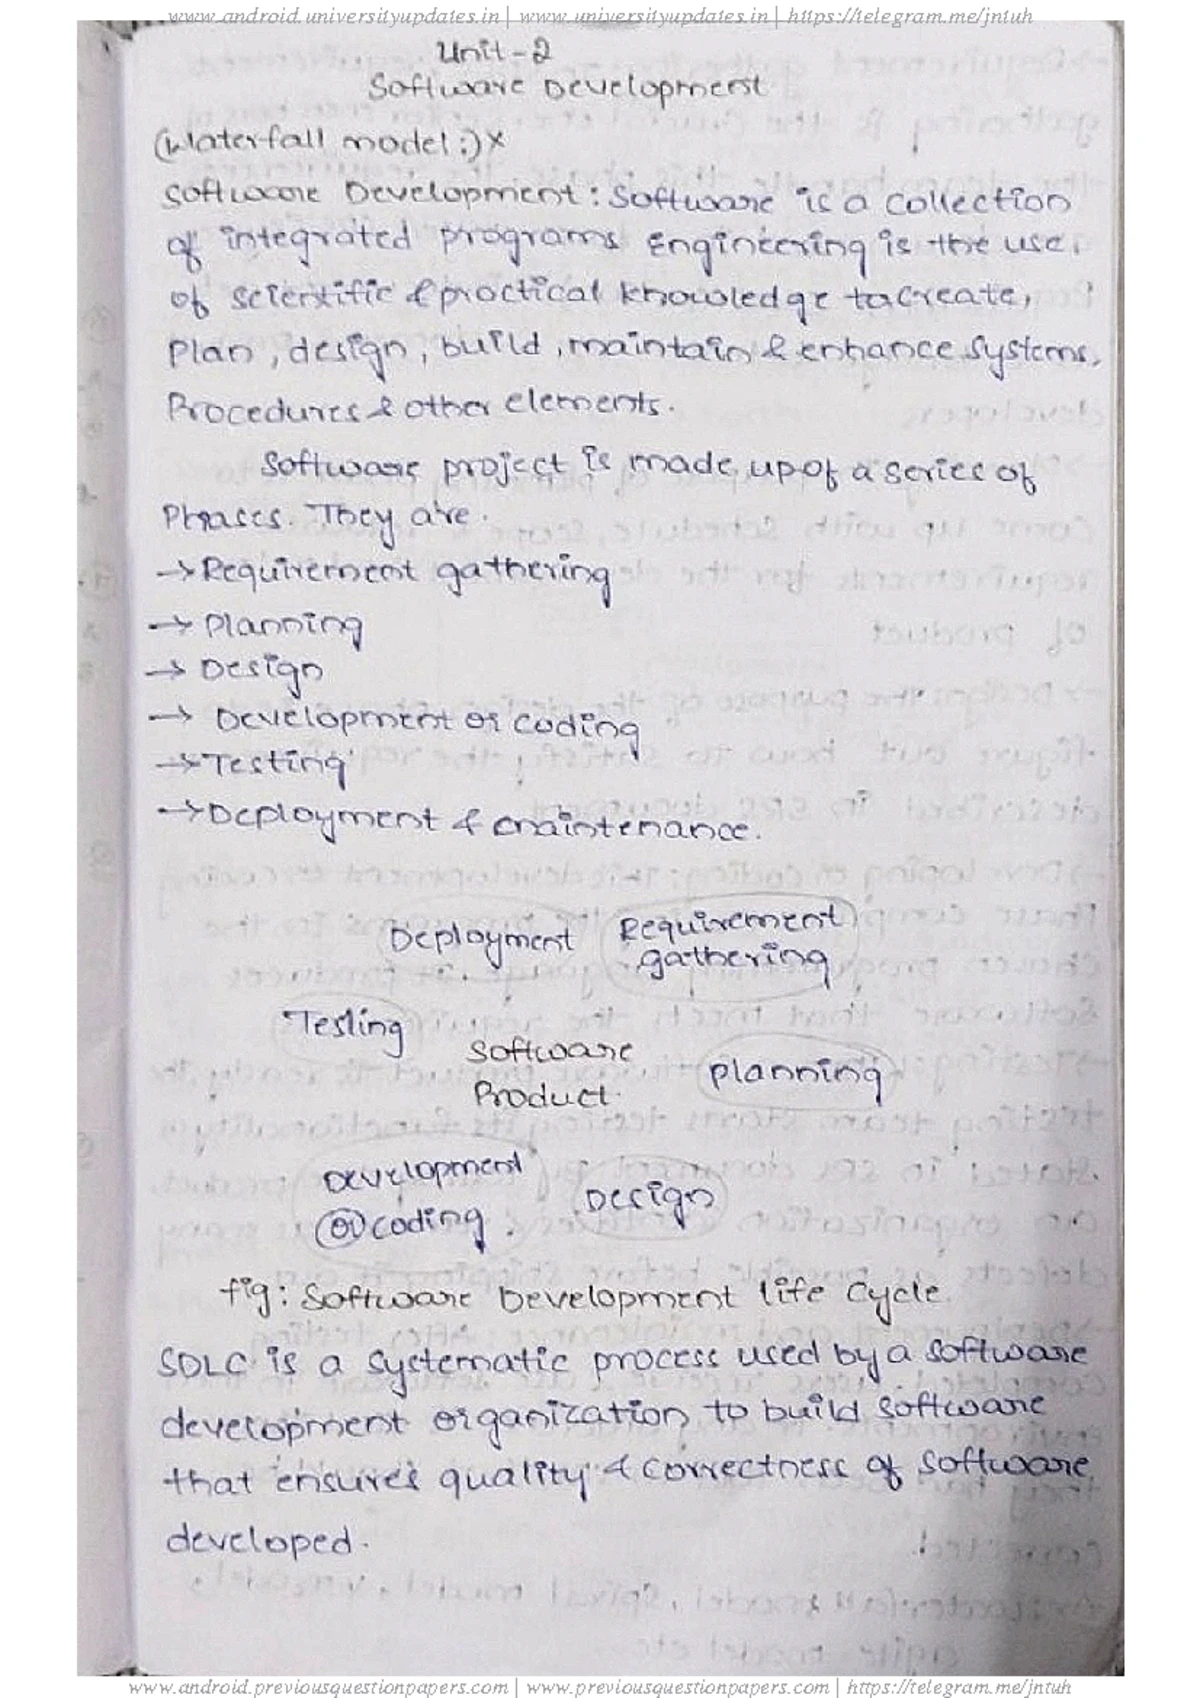 www.android.universityupdates.in | www.universityupdates.in | https://telegram.me/jntuh
Unit-2
Software Development
(Waterfall model:)×
Software Development: Software is a collection
of integrated programs Engineering is the use
of scientific & practical knowledge to create,
Plan, design, build, maintain & enhance systems,
Procedures & other elements.
Software project is made up of a series of
Phases. They are.
→Requirement gathering
→ Planning
→ Design
→ Development or coding
→Testing
→Deployment & maintenance.
Deployment Requirement
gathering
Testing
Software
Product.
planning
Development
(or) coding.
Design
fig: Software Development life cycle.
SDLC is a systematic process used by a software
development organization to build software
that ensures quality & correctness of software
developed.
www.android.previousquestionpapers.com | www.previousquestionpapers.com | https://telegram.me/jntuh